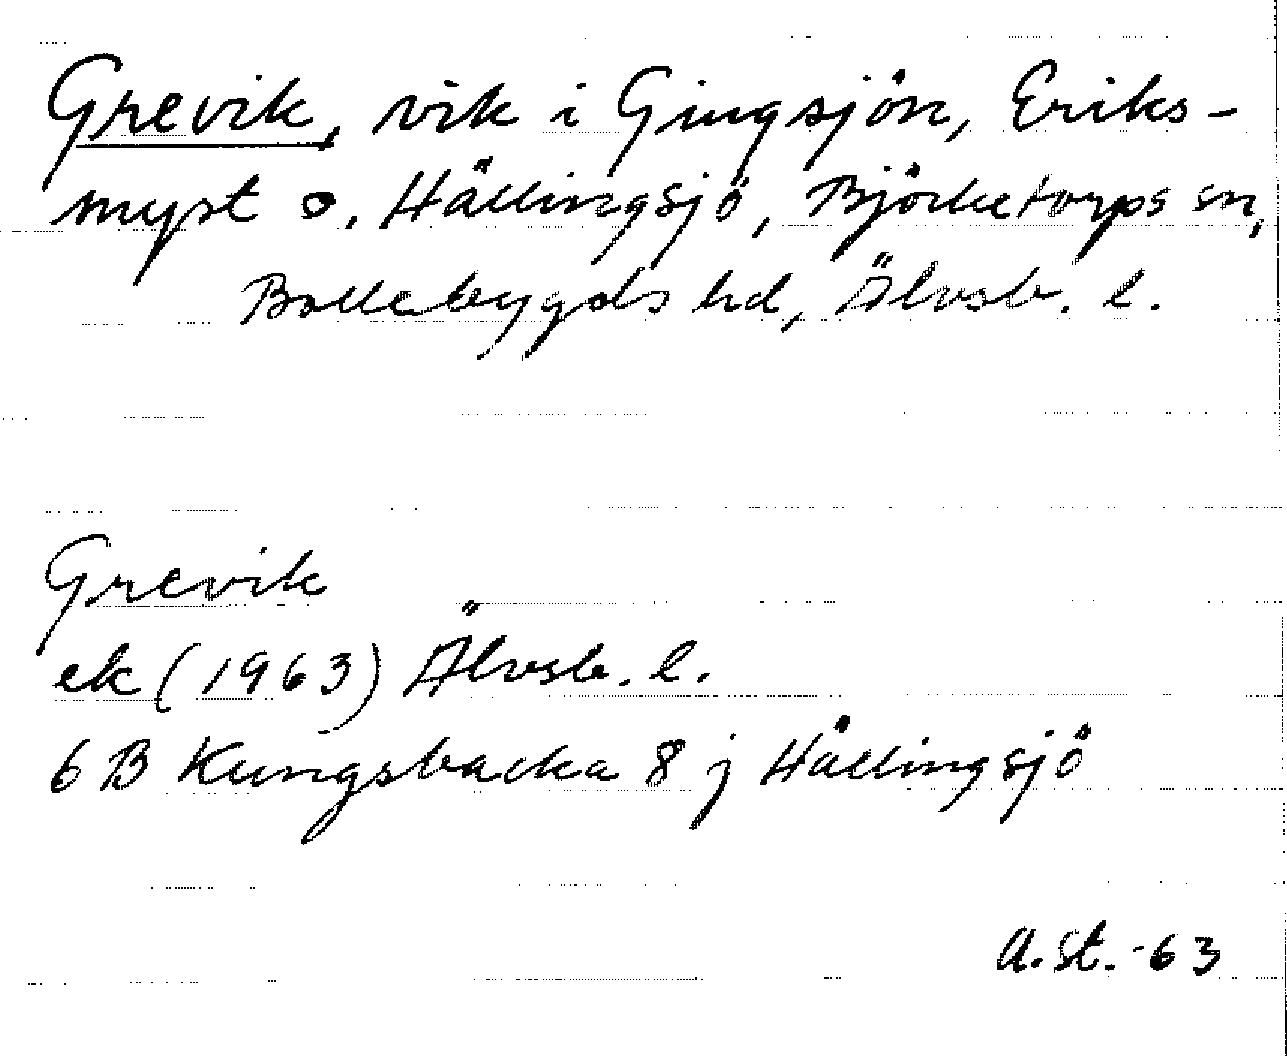 Grevik, vik i Gingsjön, Eriks-
myst o. Hällingsjö, Björketorps sn,
Bollebygds hd, Älvsb. l.
Grevik
ek (1963) Älvsb. l.
6 B Kungsbacka 8 j Hällingsjö
A. St. -63